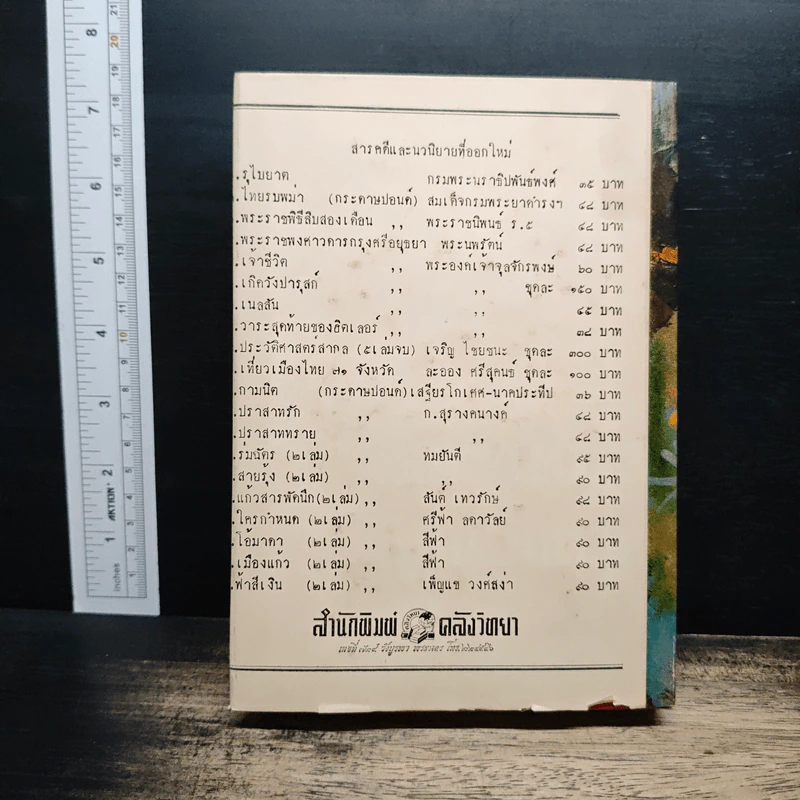 สารคดีและนวนิยายที่ออกใหม่
.รุไบยาต กรมพระนราธิปพันธ์พงศ์ ๓๕ บาท
.ไทยรบพม่า (กระดาษปอนด์) สมเด็จกรมพระยาดำรงฯ ๔๘ บาท
.พระราชพิธีสิบสองเดือน ,, พระราชนิพนธ์ ร.๕ ๔๘ บาท
.พระราชพงศาวดารกรุงศรีอยุธยา พระนพรัตน์ ๔๘ บาท
.เจ้าชีวิต ,, พระองค์เจ้าจุลจักรพงษ์ ๖๐ บาท
.เกิดวังปารุสก์ ,, ,, ชุดละ ๑๕๐ บาท
.เนลสัน ,, ,, ๔๕ บาท
.วาระสุดท้ายของฮิตเลอร์ ,, ,, ๓๘ บาท
.ประวัติศาสตร์สากล (๕เล่มจบ) เจริญ ไชยชนะ ชุดละ ๓๐๐ บาท
.เที่ยวเมืองไทย ๗๑ จังหวัด ละออง ศรีสุคนธ์ ชุดละ ๑๐๐ บาท
.กามนิต (กระดาษปอนด์) เสฐียรโกเศศ-นาคประทีป ๓๖ บาท
.ปราสาทรัก ,, ก.สุรางคนางค์ ๔๘ บาท
.ปราสาททราย ,, ,, ๔๘ บาท
.ร่มฉัตร (๒เล่ม) ,, ทมยันตี ๙๕ บาท
.สายรุ้ง (๒เล่ม) ,, ,, ๙๐ บาท
.แก้วสารพัดนึก(๒เล่ม),, สันต์ เทวรักษ์ ๙๘ บาท
.ใครกำหนด (๒เล่ม) ,, ศรีฟ้า ลดาวัลย์ ๙๐ บาท
.โอ้มาดา (๒เล่ม) ,, สีฟ้า ๙๐ บาท
.เมืองแก้ว (๒เล่ม) ,, สีฟ้า ๙๐ บาท
.ฟ้าสีเงิน (๒เล่ม) ,, เพ็ญแข วงศ์สง่า ๙๐ บาท
สำนักพิมพ์ คลังวิทยา
วังบูรพา พระนคร โทร.
inches
AKTION
1
2
3
4
5
6
7
8
1
2
3
4
5
6
7
8
9
10
11
12
13
14
15
16
17
18
19
20
21